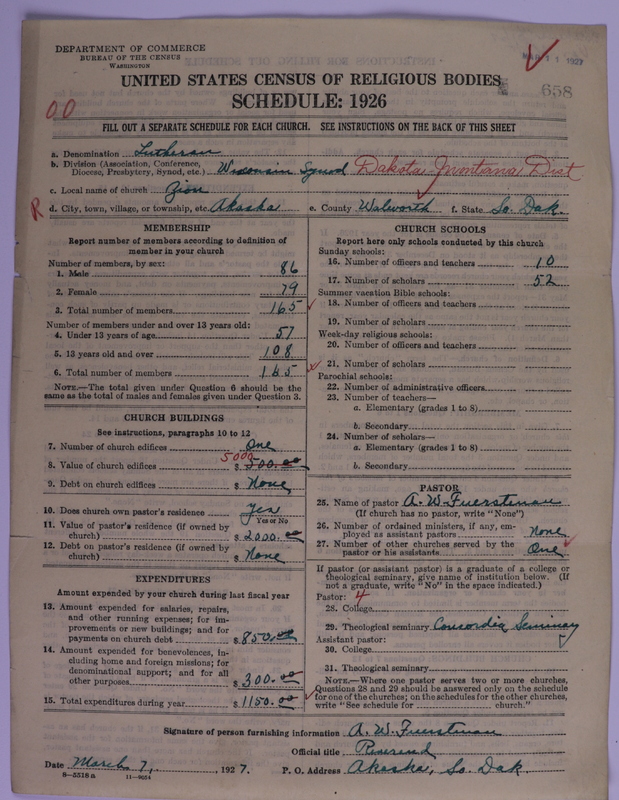 DEPARTMENT OF COMMERCE
BUREAU OF THE CENSUS
WASHINGTON
MAR 11 1927
658
UNITED STATES CENSUS OF RELIGIOUS BODIES
SCHEDULE: 1926
00
FILL OUT A SEPARATE SCHEDULE FOR EACH CHURCH. SEE INSTRUCTIONS ON THE BACK OF THIS SHEET
a. Denomination Lutheran
b. Division (Association, Conference, Diocese, Presbytery, Synod, etc.) Wisconsin Synod Dakota Montana Dist
c. Local name of church Zion
R d. City, town, village, or township, etc. Akaska e. County Walworth f. State So. Dak.
MEMBERSHIP
Report number of members according to definition of
member in your church
Number of members, by sex:
1. Male 86
2. Female 79
3. Total number of members 165
Number of members under and over 13 years old:
4. Under 13 years of age 57
5. 13 years old and over 108
6. Total number of members 165
NOTE.—The total given under Question 6 should be
same as the total of males and females given under Question 3.
CHURCH BUILDINGS
See instructions, paragraphs 10 to 12
7. Number of church edifices One
5000
8. Value of church edifices $ 500.00
9. Debt on church edifices $ None
10. Does church own pastor's residence Yes
Yes or No
11. Value of pastor's residence (if owned by
church) $ 2000.00
12. Debt on pastor's residence (if owned by
church) $ None
EXPENDITURES
Amount expended by your church during last fiscal year
13. Amount expended for salaries, repairs,
and other running expenses; for im-
provements or new buildings; and for
payments on church debt $ 850.00
14. Amount expended for benevolences, in-
cluding home and foreign missions; for
denominational support; and for all
other purposes $ 300.00
15. Total expenditures during year $ 1150.00
CHURCH SCHOOLS
Report here only schools conducted by this church
Sunday schools:
16. Number of officers and teachers 10
17. Number of scholars 52
Summer vacation Bible schools:
18. Number of officers and teachers
19. Number of scholars
Week-day religious schools:
20. Number of officers and teachers
21. Number of scholars
Parochial schools:
22. Number of administrative officers
23. Number of teachers—
a. Elementary (grades 1 to 8)
b. Secondary
24. Number of scholars—
a. Elementary (grades 1 to 8)
b. Secondary
PASTOR
25. Name of pastor A. W. Fuerstenau
(If church has no pastor, write "None")
26. Number of ordained ministers, if any, em-
ployed as assistant pastors None
27. Number of other churches served by the
pastor or his assistants One
If pastor (or assistant pastor) is a graduate of a college or
theological seminary, give name of institution below. (If
not a graduate, write "No" in the space indicated.)
Pastor: 4
28. College
29. Theological seminary Concordia Seminary
Assistant pastor:
30. College
31. Theological seminary
NOTE.—Where one pastor serves two or more churches,
Questions 28 and 29 should be answered only on the schedule
for one of the churches; on the schedules for the other churches,
write "See schedule for church."
Signature of person furnishing information A. W. Fuerstenau
Official title Reverend
Date March 7, , 1927. P. O. Address Akaska, So. Dak.
8-5518a 11-9054